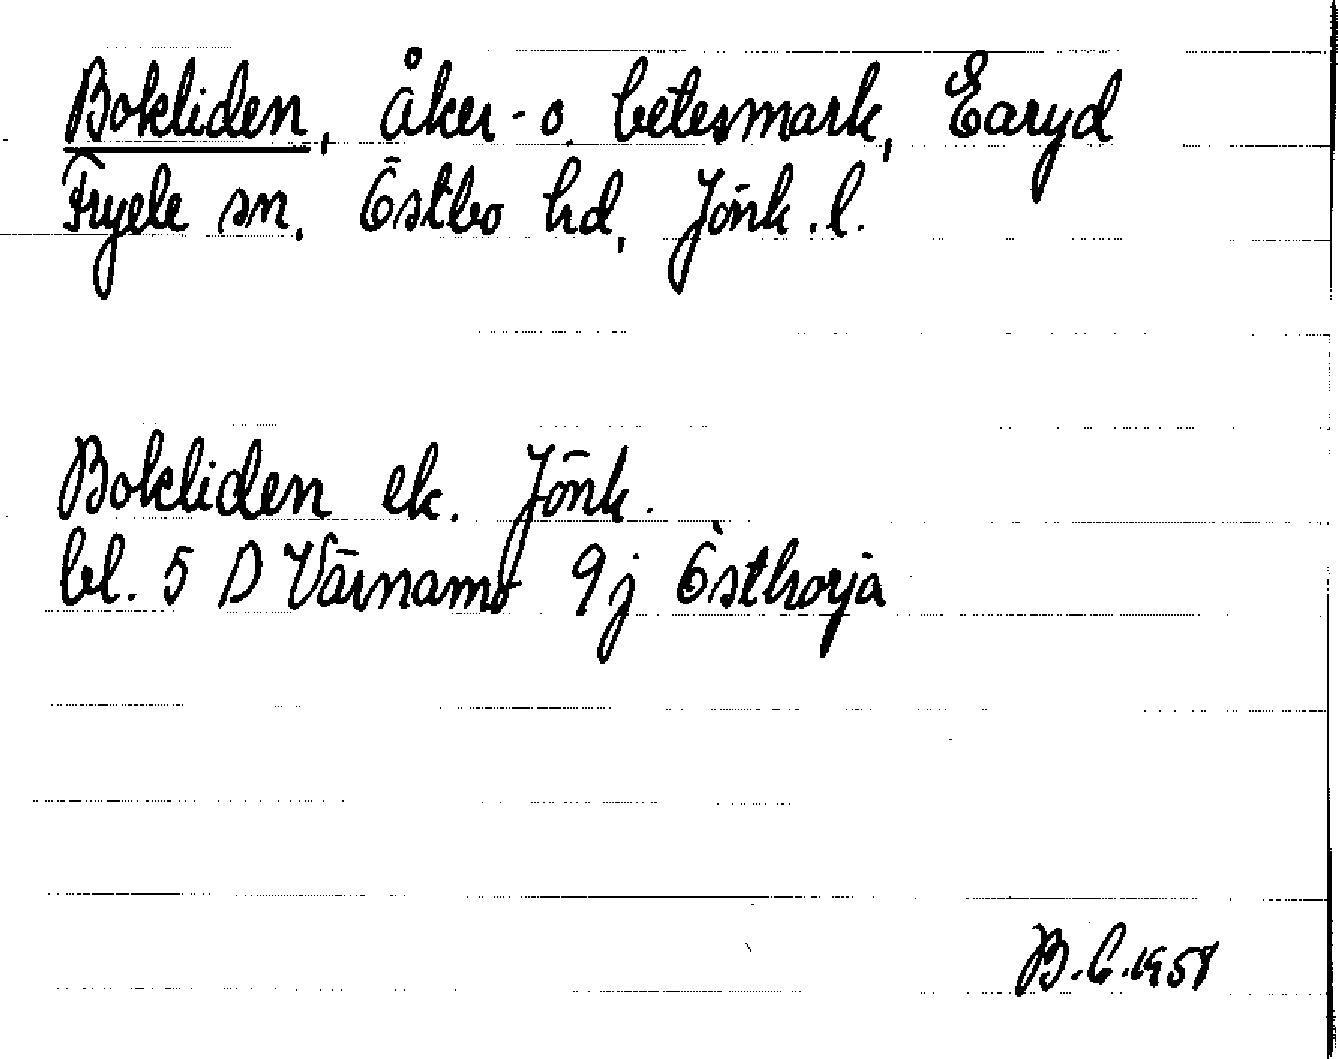 Bokliden, åker- o. betesmark, Earyd
Fryele sn. Östbo hd, Jönk. l.
Bokliden ek. Jönk.
bl. 5 D Värnamo 9j Östhorja
B.E. 1958